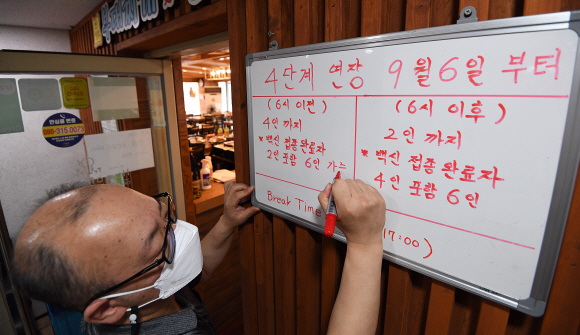 4단계 연장 9월6일 부터
(6시 이전)
4인 까지
* 백신 접종 완료자
2인 포함 6인 가느
(6시 이후)
2인 까지
* 백신 접종 완료자
4인 포함 6인
Break Time
17:00)
안심콜